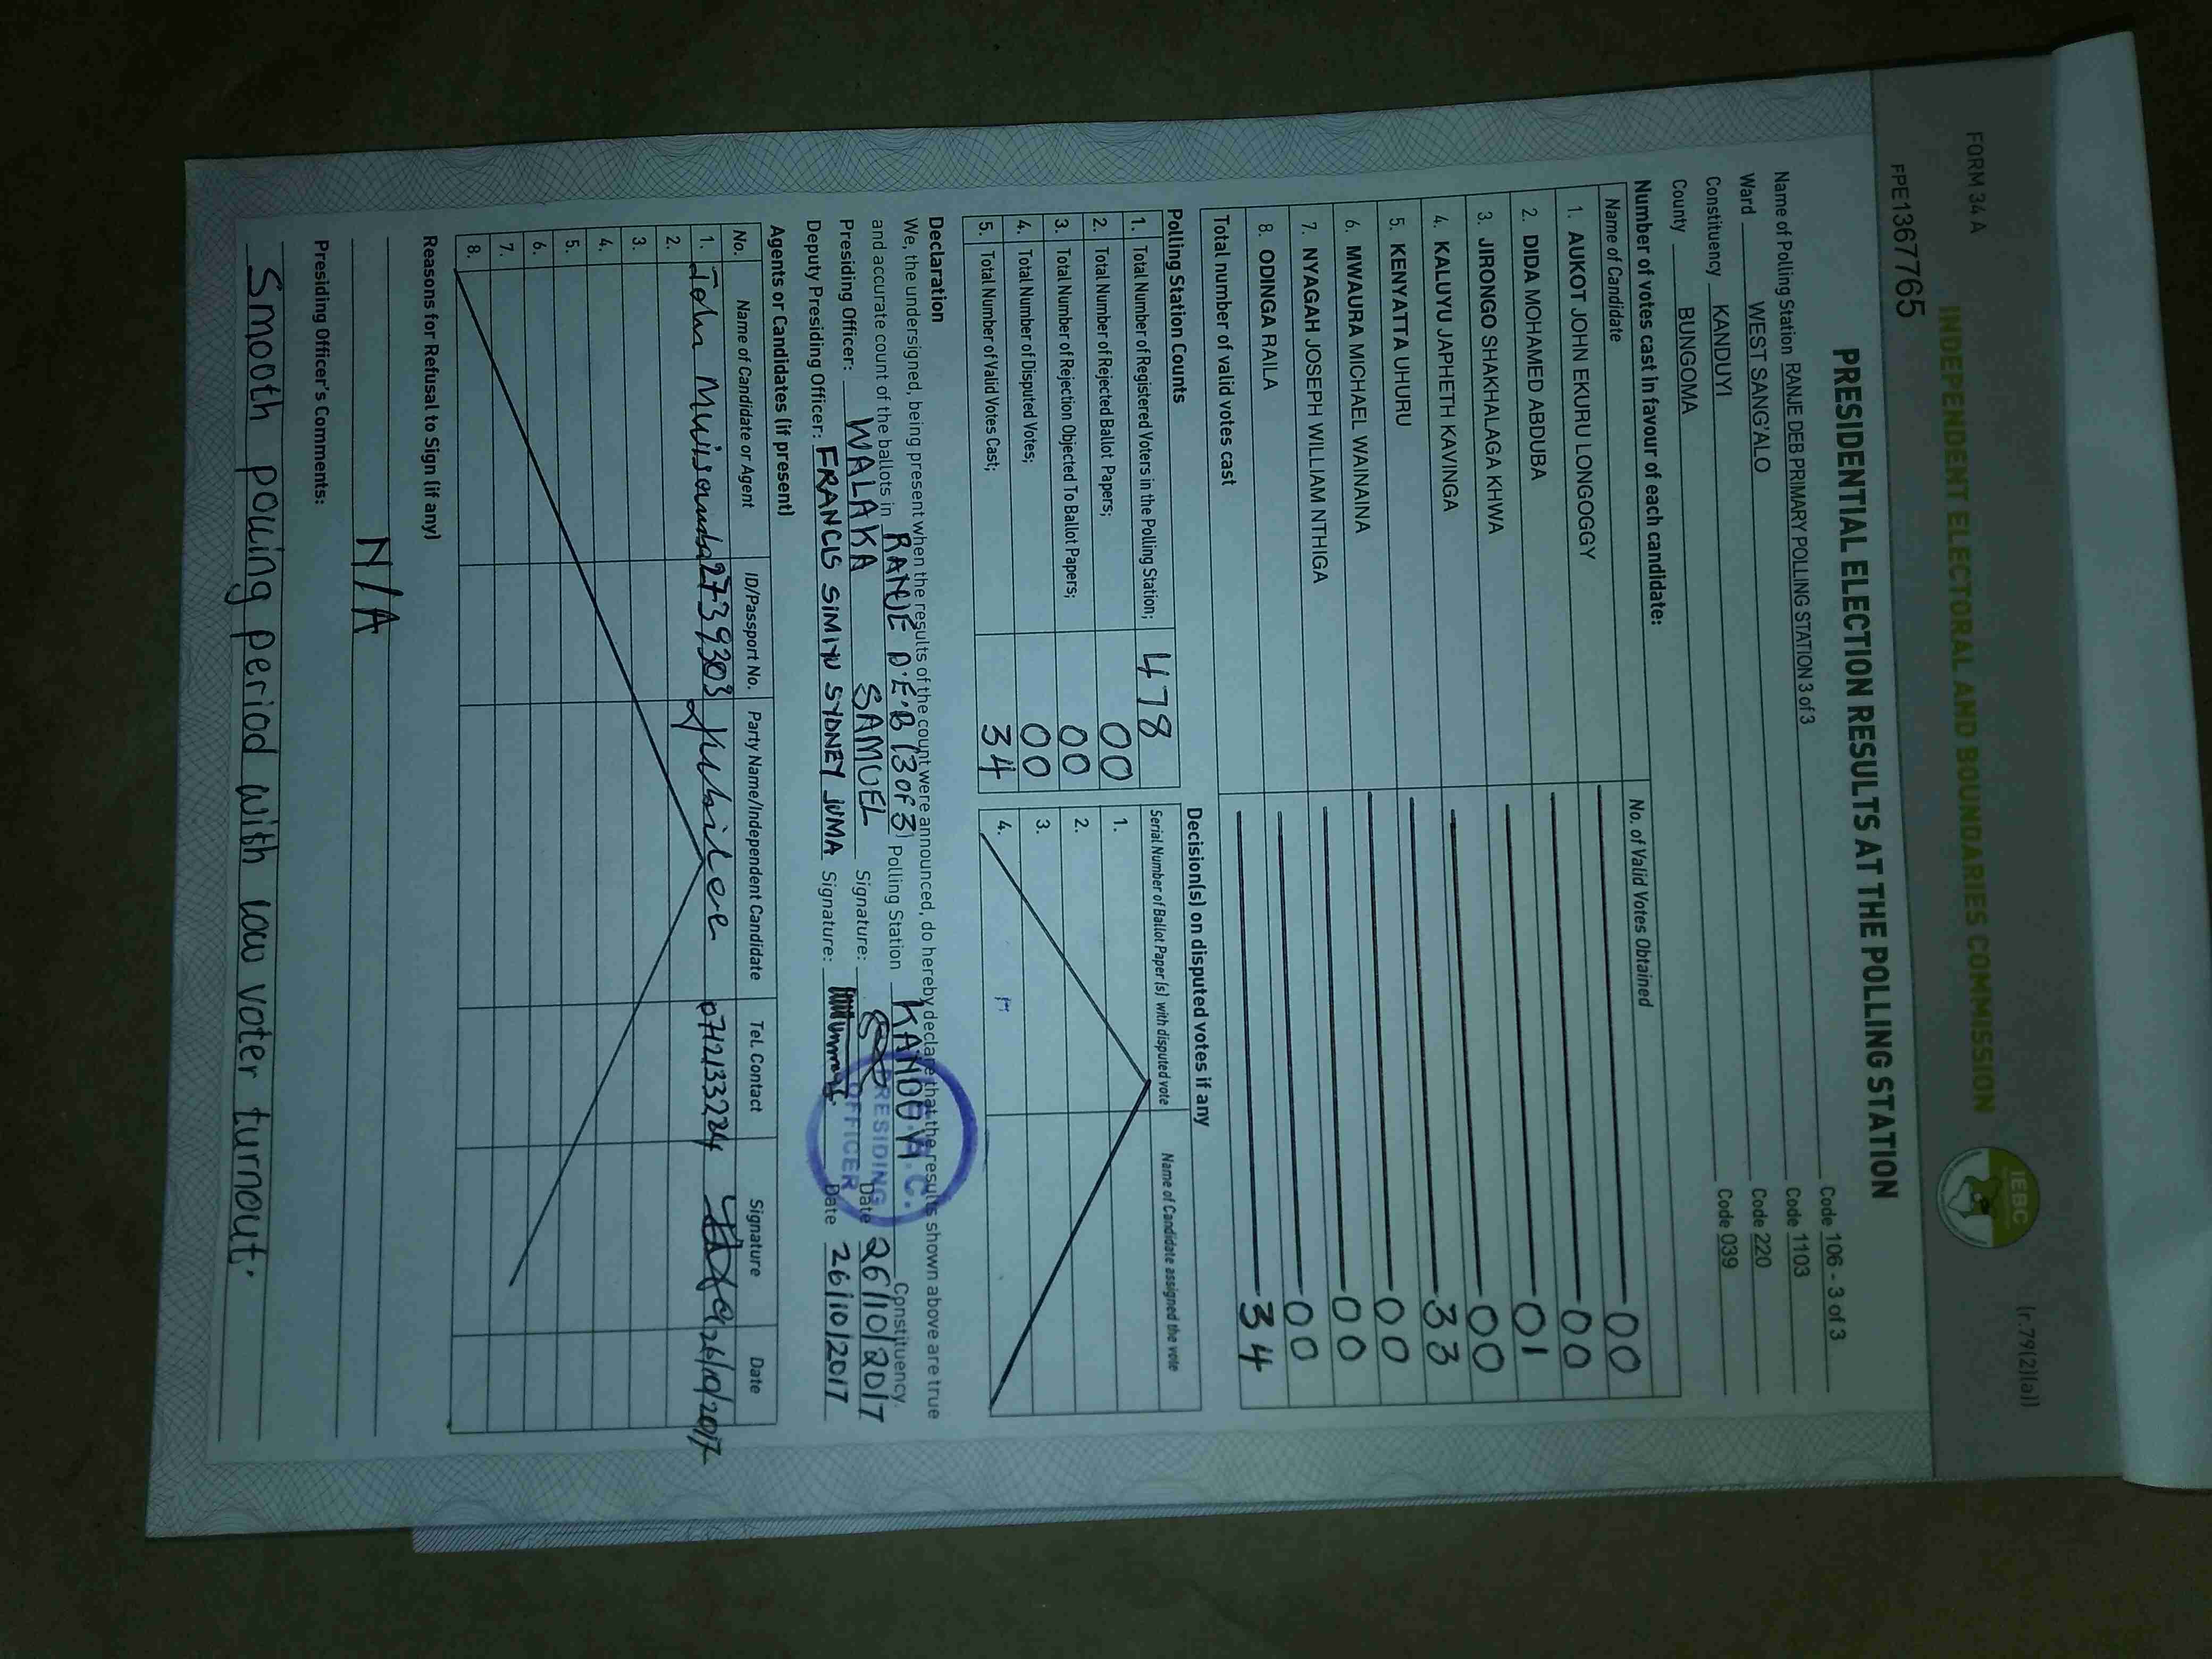 FORM 34 A
(r.79(2)(a))
INDEPENDENT ELECTORAL AND BOUNDARIES COMMISSION
IEBC
FPE1367765
PRESIDENTIAL ELECTION RESULTS AT THE POLLING STATION
Name of Polling Station RANJE DEB PRIMARY POLLING STATION 3 of 3 Code 106 - 3 of 3
Ward WEST SANG'ALO Code 1103
Constituency KANDUYI Code 220
County BUNGOMA Code 039
Number of votes cast in favour of each candidate:
Name of Candidate No. of Valid Votes Obtained
1. AUKOT JOHN EKURU LONGOGGY 00
2. DIDA MOHAMED ABDUBA 00
3. JIRONGO SHAKHALAGA KHWA 01
4. KALUYU JAPHETH KAVINGA 00
5. KENYATTA UHURU 33
6. MWAURA MICHAEL WAINAINA 00
7. NYAGAH JOSEPH WILLIAM NTHIGA 00
8. ODINGA RAILA 00
Total number of valid votes cast 34
Polling Station Counts
1. Total Number of Registered Voters in the Polling Station; 478
2. Total Number of Rejected Ballot Papers; 00
3. Total Number of Rejection Objected To Ballot Papers; 00
4. Total Number of Disputed Votes; 00
5. Total Number of Valid Votes Cast; 34
Decision(s) on disputed votes if any
Serial Number of Ballot Paper(s) with disputed vote Name of Candidate assigned the vote
1.
2.
3.
4.
Declaration
We, the undersigned, being present when the results of the count were announced, do hereby declare that the results shown above are true
and accurate count of the ballots in RANJE D.E.B (3 of 3) Polling Station KANDUYI Constituency.
Presiding Officer: WALAKA SAMUEL Signature: Date 26/10/2017
Deputy Presiding Officer: FRANCIS SIMIYU SYDNEY JUMA Signature: Date 26/10/2017
PRESIDING
OFFICER
Agents or Candidates (if present)
No. Name of Candidate or Agent ID/Passport No. Party Name/Independent Candidate Tel. Contact Signature Date
1. John 27393303 Jubilee 0712133224 26/10/2017
2.
3.
4.
5.
6.
7.
8.
Reasons for Refusal to Sign (if any)
N/A
Presiding Officer's Comments:
Smooth polling period with low voter turnout.